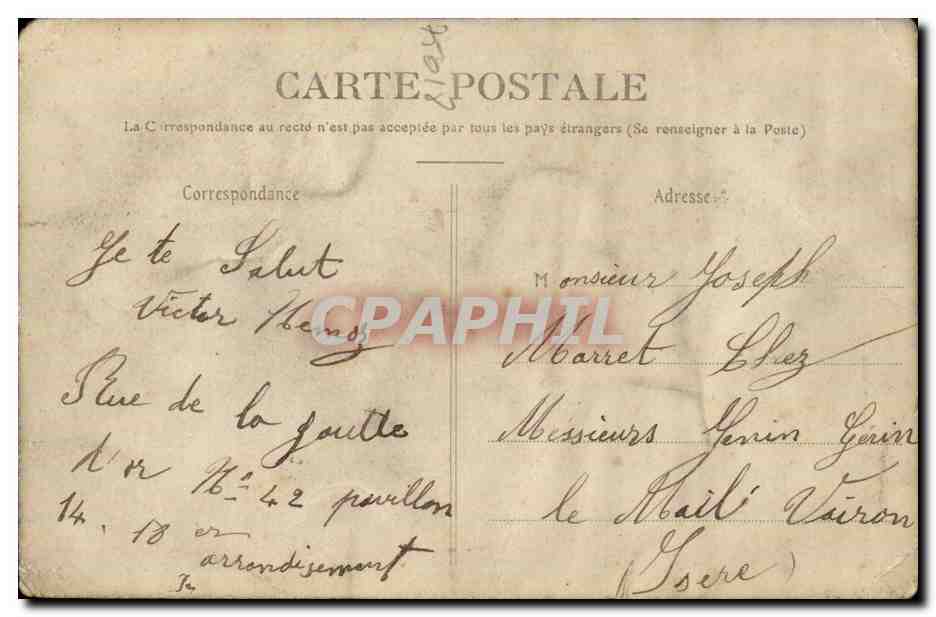 CARTE POSTALE
La Correspondance au recto n'est pas acceptée par tous les pays étrangers (Se renseigner à la Poste)
Correspondance
Je te Salut
Victor
Rue de la goutte
d'or N° 42 pavillon
14. 18 er
arrondisement
Adresse
Monsieur Joseph
Marret Chez
Messieurs Genin Gérin
le Mail Voiron
(Isere)
CPAPHIL